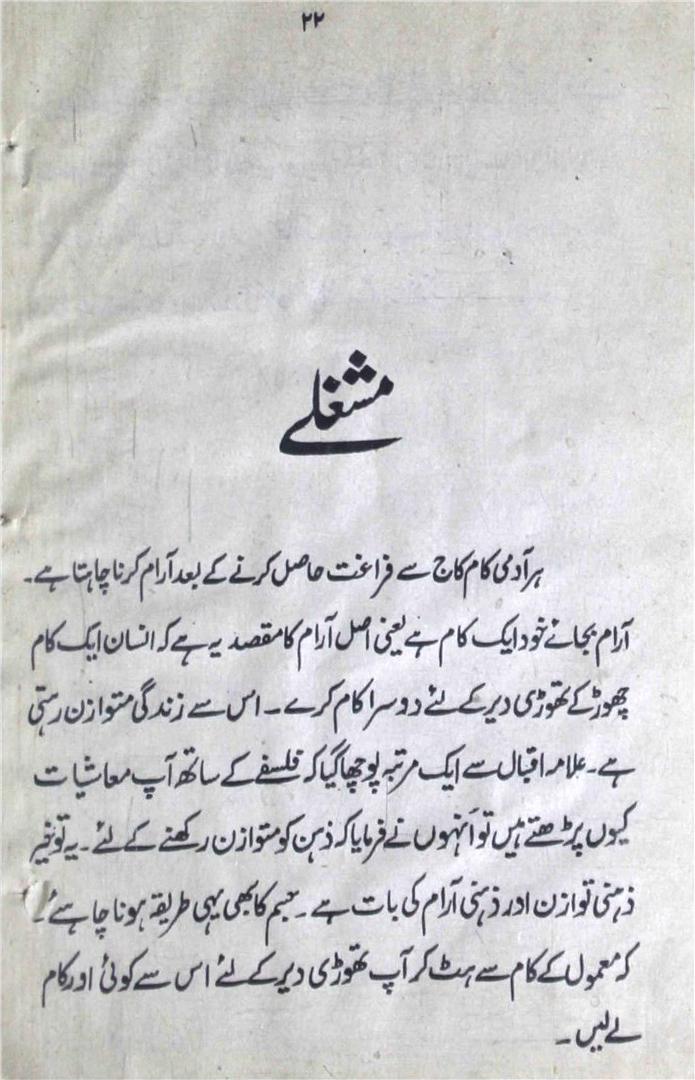 ۲۲
مشغلے
ہر آدمی کام کاج سے فراغت حاصل کرنے کے بعد آرام کرنا چاہتا ہے۔
آرام بجائے خود ایک کام ہے یعنی اصل آرام کا مقصد یہ ہے کہ انسان ایک کام
چھوڑ کے تھوڑی دیر کے لئے دوسرا کام کرے۔ اس سے زندگی متوازن رہتی
ہے۔ علامہ اقبال سے ایک مرتبہ پوچھا گیا کہ فلسفے کے ساتھ آپ معاشیات
کیوں پڑھتے ہیں تو اُنہوں نے فرمایا کہ ذہن کو متوازن رکھنے کے لئے۔ یہ تو خیر
ذہنی توازن اور ذہنی آرام کی بات ہے۔ جسم کا بھی یہی طریقہ ہونا چاہئے۔
کہ معمول کے کام سے ہٹ کر آپ تھوڑی دیر کے لئے اس سے کوئی اور کام
لے لیں۔